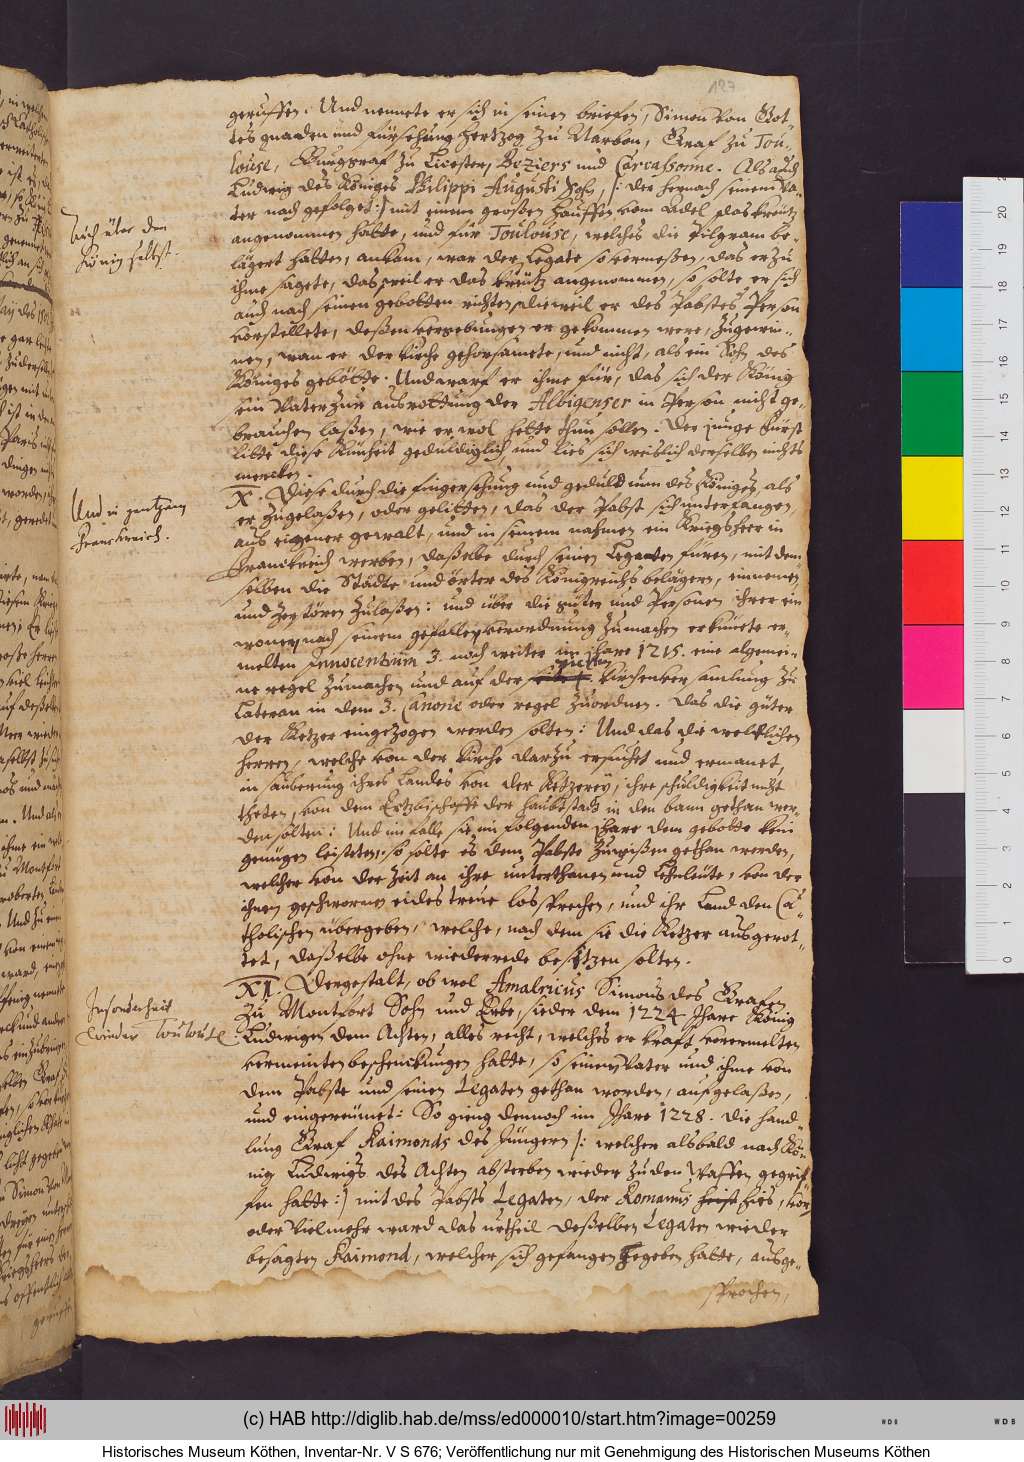 127
geruffen. Und nennete er sich in seinen brieffen, Simon von Got-
tes gnaden und fürsehung Hertzog zu Narbon, Graf zu Tou-
louse, Burggraf zu Licester, Beziers und Carcassonne. Als auch
Ludwig des Königes Philippi Augusti Sohn, |: der hernach seinem Va-
ter nach gefolget :| mit einem großen hauffen vom Adel, das kreutz
angenommen hatte, und für Toulouse, welches die Pilgram be-
lägert hatten, ankam, war der Legate so vermeßen, das er zu
ihme sagete, das, weil er das kreutz angenommen, so solte er sich
auch nach seinen gebotten richten, dieweil er des Pabstes Person
vorstellete, deßen vergebungen er gekommen were, zugewin-
nen, wan er der kirche gehorsamete, und nicht, als ein Sohn des
Königes gebötte. Und warf er ihme für, das sich der König
sein Vater zur ausrottung der Albigenser in Person nicht ge-
brauchen laßen, wie er wol hette thun sollen. Der junge Fürst
litte diese Künheit geduldiglich, und lies sich weislich derselben nichts
mercken.
Auch über den
König selbst.
X. Diese durch die fingersehung und geduld nun des Königes, als
er zugelaßen, oder gelitten, das der Pabst sich unterfangen,
aus eigener gewalt, und in seinem nahmen ein Kriegsheer in
Franckreich werben, daßelbe durch seinen Legaten füren, mit dem-
selben die Städte und örter des Königreichs belägern, einnemen
und zerstören zulaßen: und über die güter und Personen ihrer ein-
woner, nach seinem gefallen, verordnung zumachen erkünete er-
melten Innocentium 3. noch weiter im Jhare 1215. eine algemei-
ne regel zumachen und auf der kirchenversamlung zu
Lateran in dem 3. Canone oder regel zuordnen. Das die güter
der Ketzer eingezogen werden solten: Und das die weltlichen
herren, welche von der kirche darzu ersuchet und ermanet,
in säuberung ihres Landes von der Ketzerey, ihre schuldigkeit nicht
theten, von dem Ertzbischoffe der haubtstadt in den bann gethan wer-
den solten: Und im falle sie im folgenden Jhare dem gebotte kein
genügen leisteten, so solte es dem Pabste zuwißen gethan werden,
welcher von der Zeit an ihre unterthanen und Lehnleute, von der
ihnen geschwornen eides treue losspreche, und ihr Land den Ca-
tholischen übergeben, welche, nach dem sie die Ketzer ausgerot-
tet, daßelbe ohne wiederrede besitzen solten.
Und in gantzem
Franckreich.
XI. Dergestalt, ob wol Amalricus Simons des Grafen
zu Montfort Sohn und Erbe, sieder dem 1224. Jhare König
Ludwigen dem Achten, alles recht, welches er kraft vorermelten
vermeinten beschenckungen hatte, so seinem Vater und ihme von
dem Pabste und seinen Legaten gethan worden, aufgelaßen,
und eingereumet: So gieng dennoch im Jhare 1228. die hand-
lung Graf Raimonds des Jüngern |: welcher alsbald nach Kö-
nig Ludwigs des Achten absterben wieder zu den Waffen gegrif-
fen hatte :| mit des Pabsts Legaten, der Romanus hies, vor,
oder Vielmehr ward das urtheil deßelben Legaten wieder
besagten Raimond, welcher sich gefangen gegeben hatte, ausge-
sprochen,
Insonderheit
wieder Toulouse.
(c) HAB http://diglib.hab.de/mss/ed000010/start.htm?image=00259
Historisches Museum Köthen, Inventar-Nr. V S 676; Veröffentlichung nur mit Genehmigung des Historischen Museums Köthen